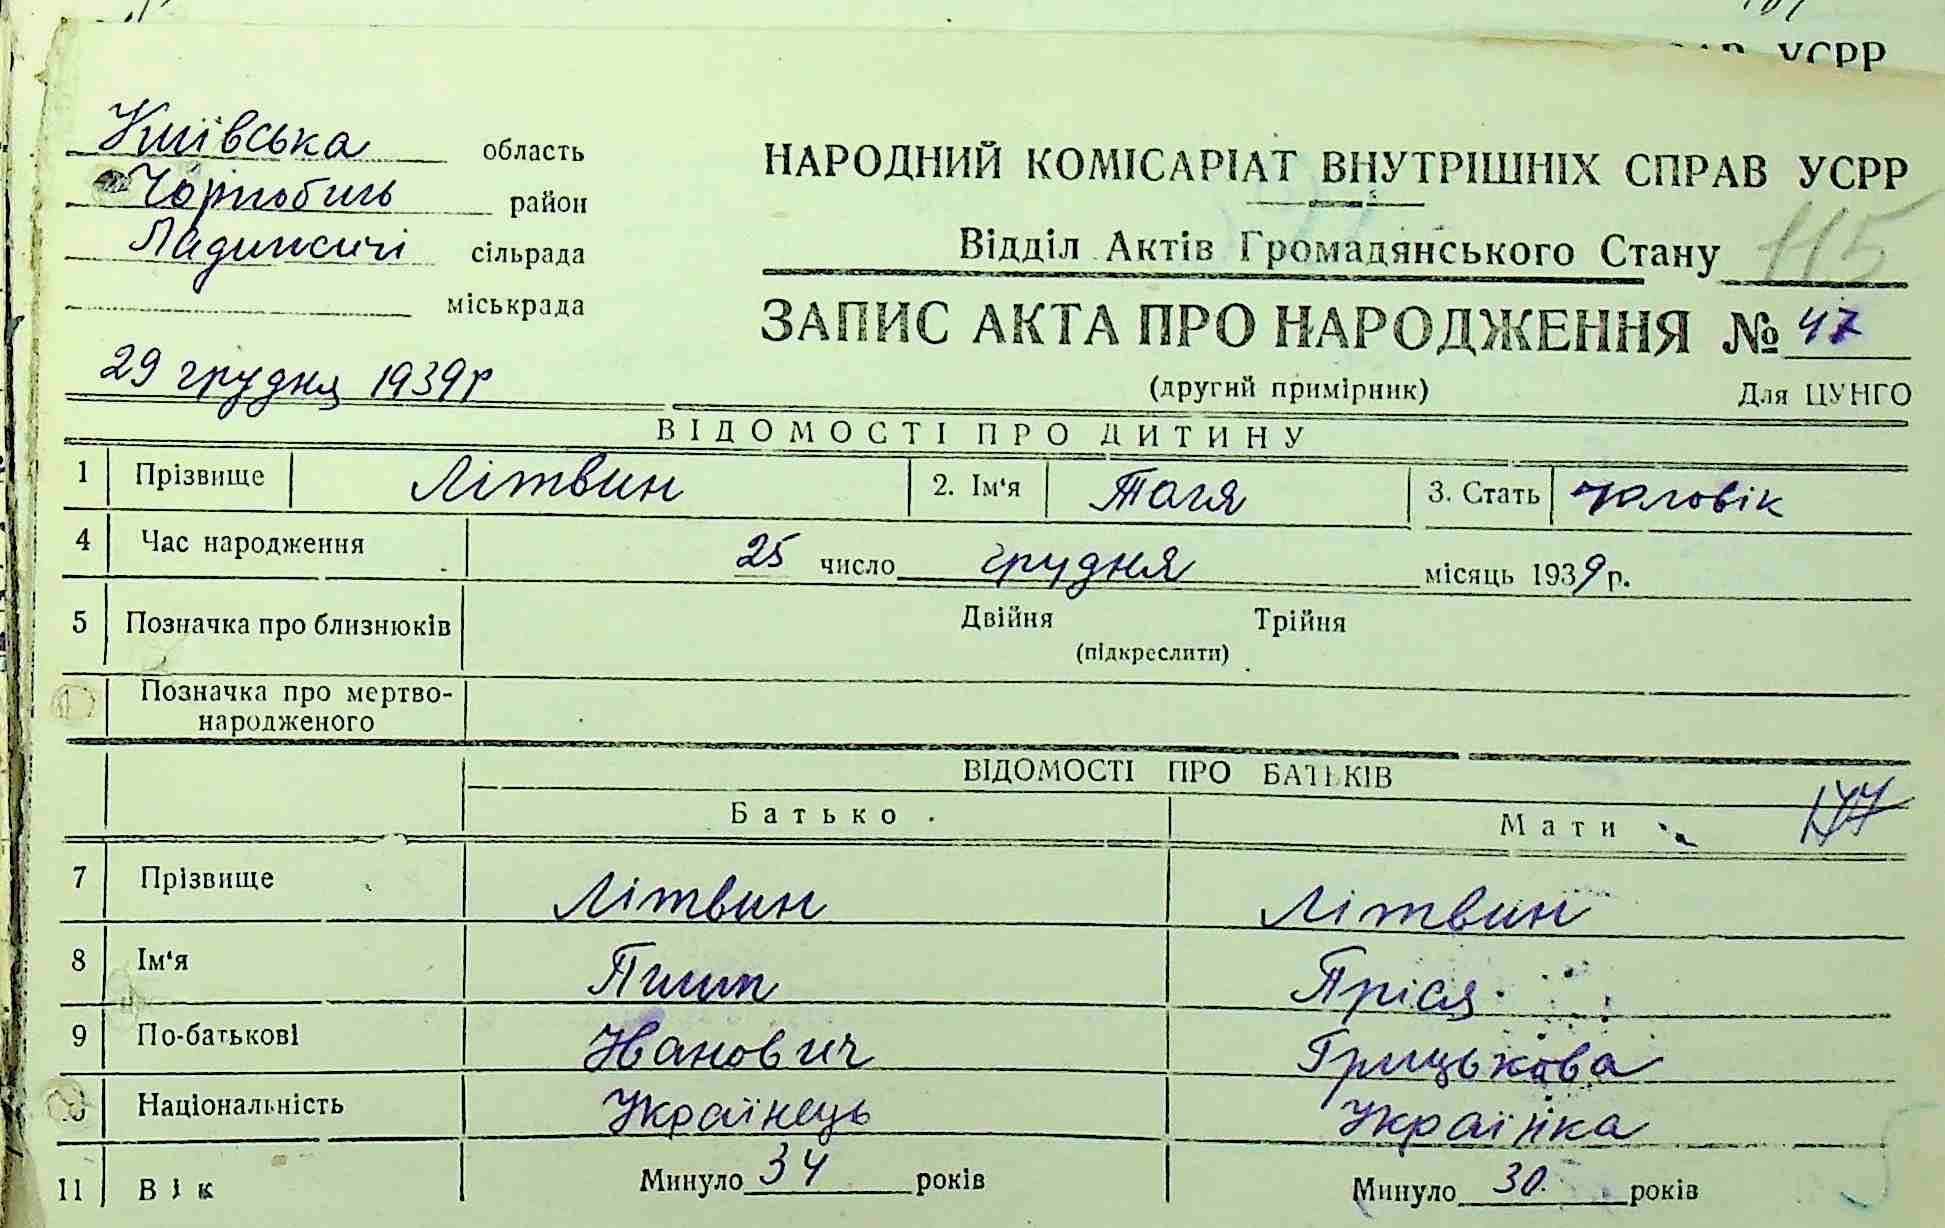 УСРР
Київська область
Чорнобиль район
Ладижичі сільрада
міськрада
29 грудня 1939 р
НАРОДНИЙ КОМІСАРІАТ ВНУТРІШНІХ СПРАВ УСРР
Відділ Актів Громадянського Стану 115
ЗАПИС АКТА ПРО НАРОДЖЕННЯ № 47
(другий примірник) Для ЦУНГО
ВІДОМОСТІ ПРО ДИТИНУ
1 Прізвище Літвин 2. Ім'я 3. Стать чоловік
4 Час народження 25 число грудня місяць 1939 р.
5 Позначка про близнюків Двійня Трійня
(підкреслити)
Позначка про мертво-
народженого
ВІДОМОСТІ ПРО БАТЬКІВ
Батько Мати
7 Прізвище Літвин Літвин
8 Ім'я Пилип Пріся
9 По-батькові Іванович Грицькова
10 Національність Українець Українка
11 Вік Минуло 34 років Минуло 30 років